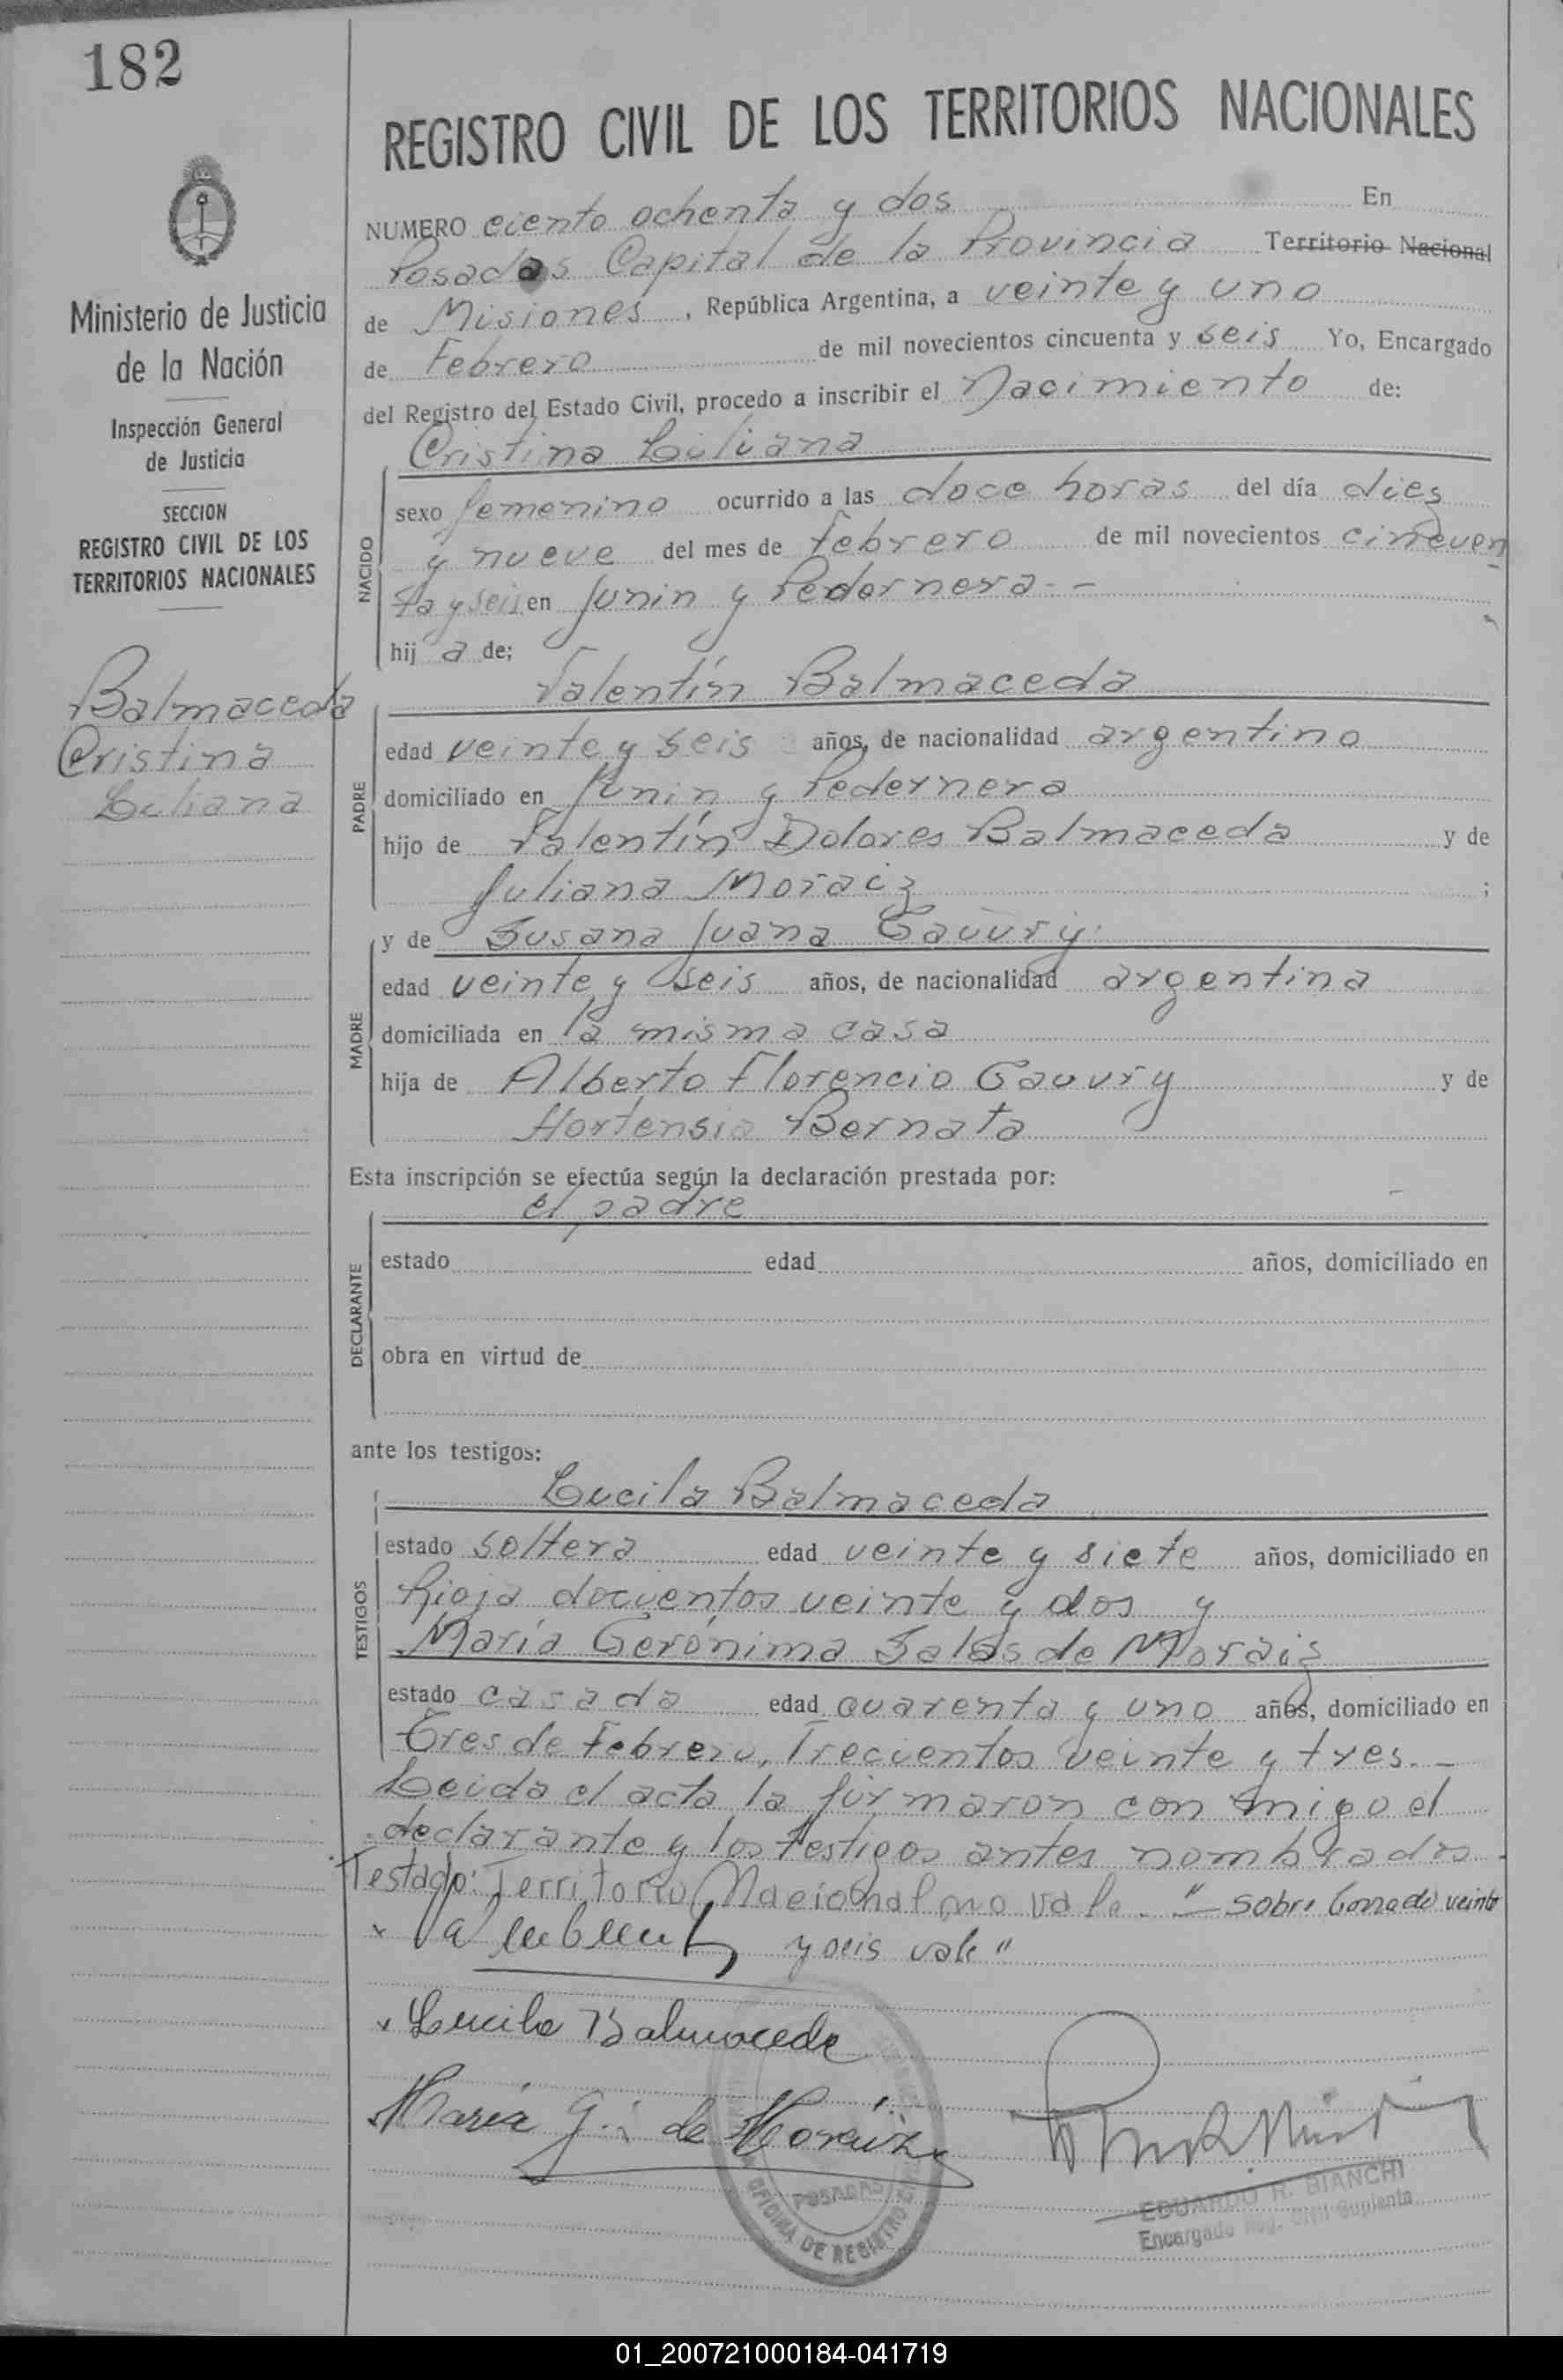 182
REGISTRO CIVIL DE LOS TERRITORIOS NACIONALES
Ministerio de Justicia
de la Nación
Inspección General
de Justicia
SECCION
REGISTRO CIVIL DE LOS
TERRITORIOS NACIONALES
Balmaceda
Cristina
Liliana
NUMERO ciento ochenta y dos En
Posadas Capital de la Provincia Territorio Nacional
de Misiones, República Argentina, a veinte y uno
de Febrero de mil novecientos cincuenta y seis Yo, Encargado
del Registro del Estado Civil, procedo a inscribir el Nacimiento de:
Cristina Liliana
NACIDO
sexo femenino ocurrido a las doce horas del día diez
y nueve del mes de Febrero de mil novecientos cincuen
ta y seis en Junin y Pedernera.-
hija de;
Valentín Balmaceda
PADRE
edad veinte y seis años, de nacionalidad argentino
domiciliado en Junin y Pedernera
hijo de Valentín Dolores Balmaceda y de
Juliana Moraiz ;
y de Susana Juana Gauvry
MADRE
edad veinte y seis años, de nacionalidad argentina
domiciliada en la misma casa
hija de Alberto Florencio Gauvry y de
Hortensia Bernata
Esta inscripción se efectúa según la declaración prestada por:
el padre
DECLARANTE
estado edad años, domiciliado en
obra en virtud de
ante los testigos:
Lucila Balmaceda
TESTIGOS
estado soltera edad veinte y siete años, domiciliado en
Rioja docientos veinte y dos y
María Gerónima Salas de Moraiz
estado casada edad cuarenta y uno años, domiciliado en
Tres de Febrero, Trecientos veinte y tres.-
Leida el acta la firmaron con migo el
declarante y los testigos antes nombrados.
Testado: Territorio Nacional no vale. "- sobre borrado veinte
y seis vale"
Lucila Balmaceda
María G. de Moraiz
POSADAS
OFICINA DE REGISTRO
EDUARDO R. BIANCHI
Encargado Reg. Civil Suplente
01_200721000184-041719